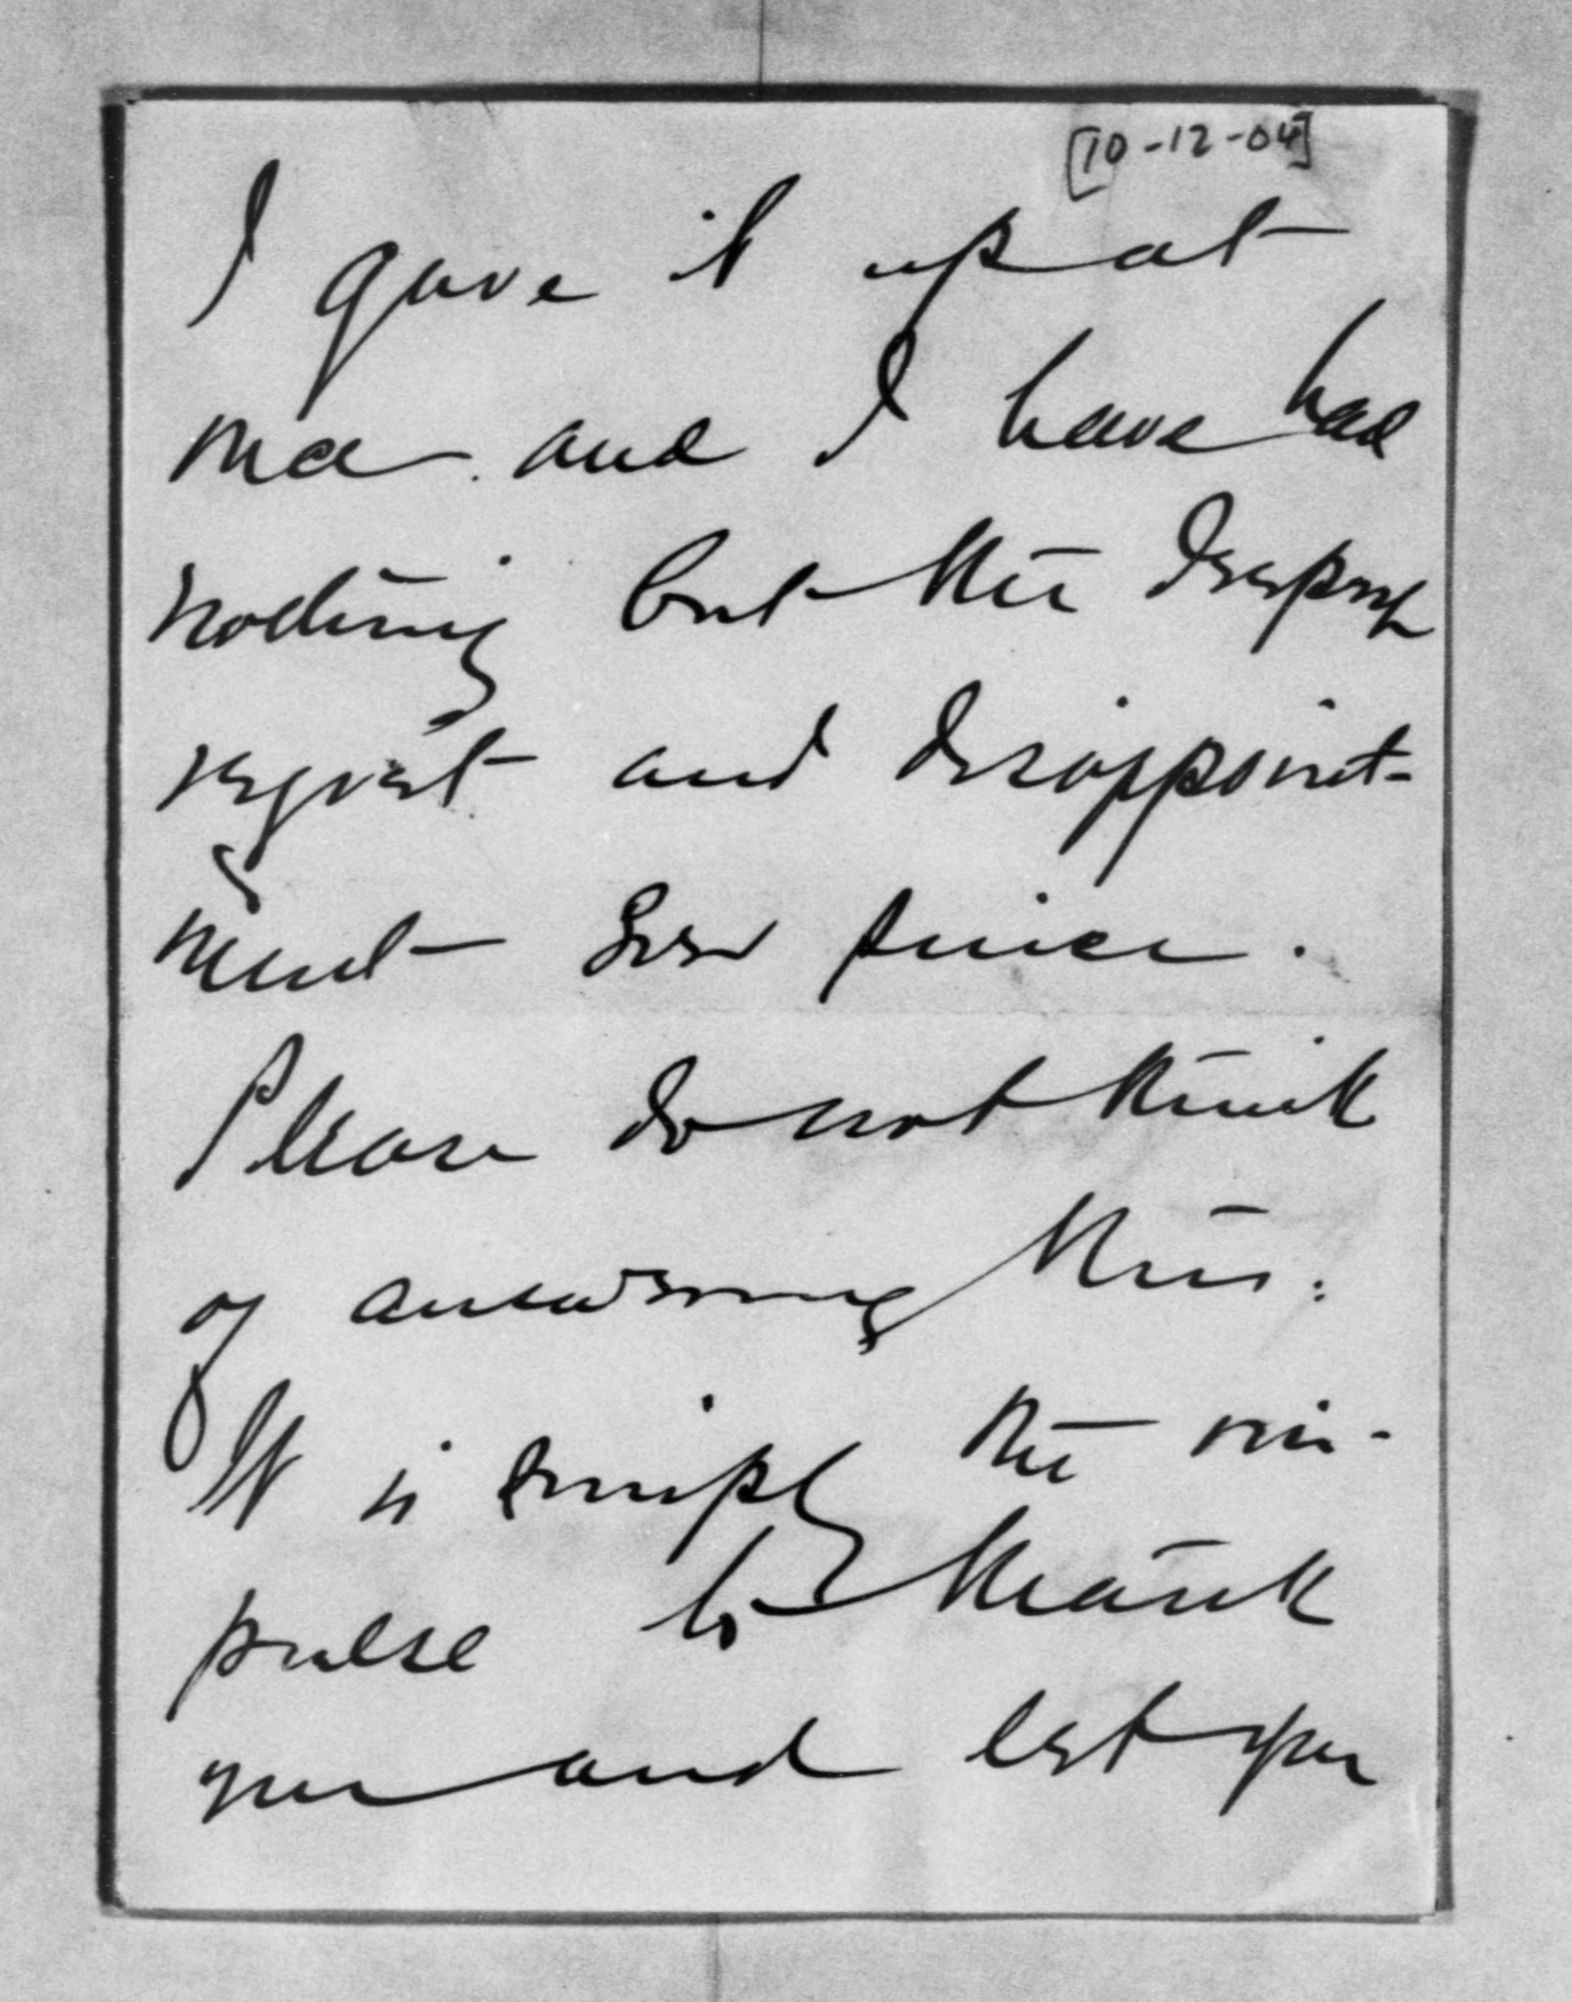 [10-12-04]
I gave it up at
once and I have had
nothing but the deepest
regret and disappoint-
ment ever since.
Please do not think
of answering this:
It is simply the im-
pulse to thank
you and let you